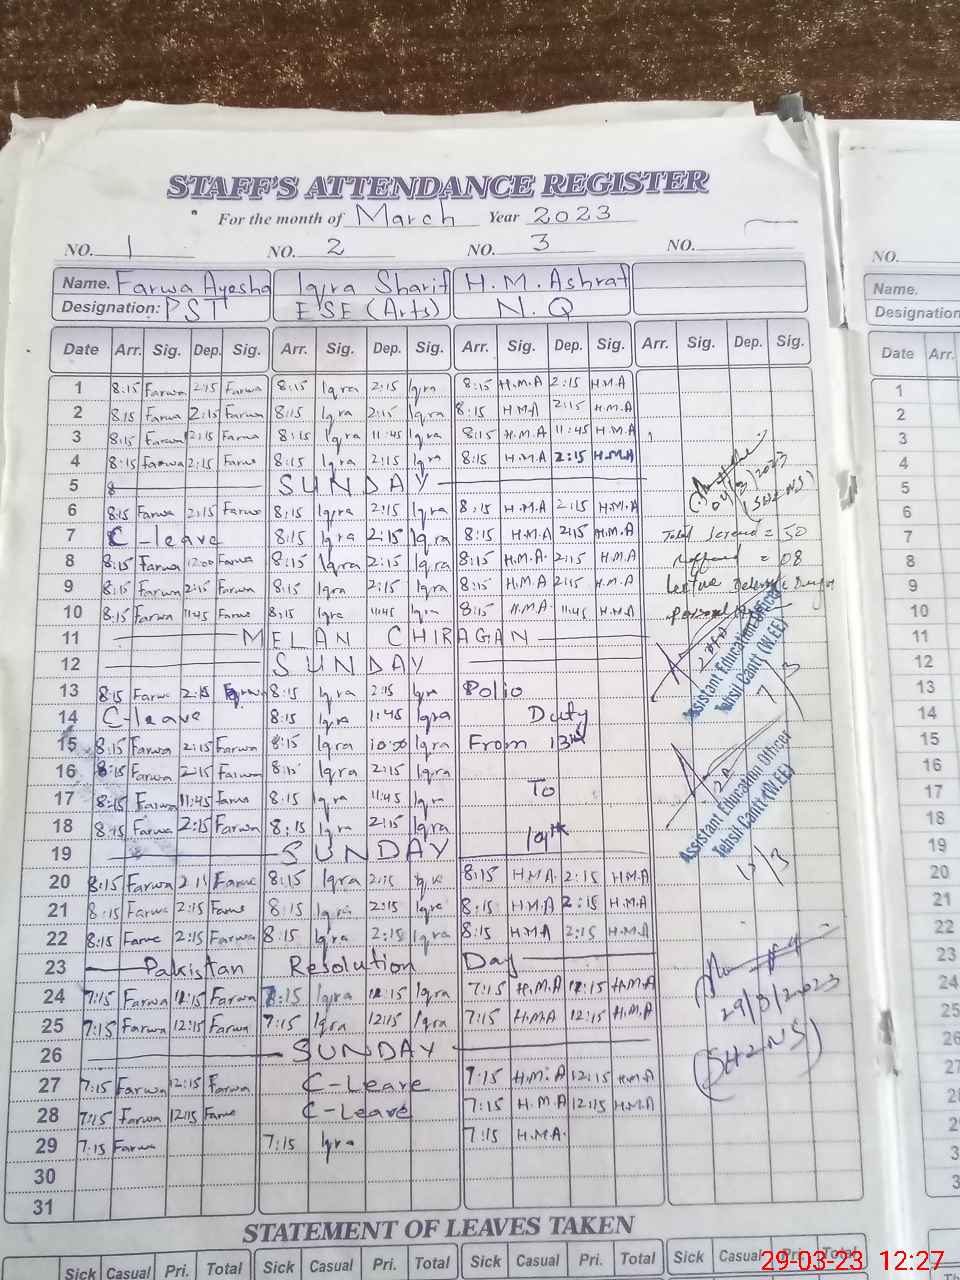 STAFF'S ATTENDANCE REGISTER
For the month of March Year 2023
NO. 1 NO. 2 NO. 3 NO.
Name. Farwa Ayesha Iqra Sharif H.M.Ashraf
Designation: PST ESE (Arts) N.Q
Date Arr. Sig. Dep. Sig. Arr. Sig. Dep. Sig. Arr. Sig. Dep. Sig. Arr. Sig. Dep. Sig.
1 8:15 Farwa 2:15 Farwa 8:15 Iqra 2:15 Iqra 8:15 H.M.A 2:15 H.M.A
2 8:15 Farwa 2:15 Farwa 8:15 Iqra 2:15 Iqra 8:15 H.M.A 2:15 H.M.A
3 8:15 Farwa 2:15 Farwa 8:15 Iqra 11:45 Iqra 8:15 H.M.A 11:45 H.M.A
4 8:15 Farwa 2:15 Farwa 8:15 Iqra 2:15 Iqra 8:15 H.M.A 2:15 H.M.A
5 SUNDAY
6 8:15 Farwa 2:15 Farwa 8:15 Iqra 2:15 Iqra 8:15 H.M.A 2:15 H.M.A
7 C-leave 8:15 Iqra 2:15 Iqra 8:15 H.M.A 2:15 H.M.A
8 8:15 Farwa 12:00 Farwa 8:15 Iqra 2:15 Iqra 8:15 H.M.A. 2:15 H.M.A
9 8:15 Farwa 2:15 Farwa 8:15 Iqra 2:15 Iqra 8:15 H.M.A 2:15 H.M.A
10 8:15 Farwa 11:45 Farwa 8:15 Iqra 11:45 Iqra 8:15 H.M.A. 11:45 H.M.A
11 MELAN CHIRAGAN
12 SUNDAY
13 8:15 Farwa 2:15 8:15 Iqra 2:15 Iqra Polio
14 C-leave 8:15 Iqra 11:45 Iqra Duty
15 8:15 Farwa 2:15 Farwa 8:15 Iqra Iqra From 13th
16 8:15 Farwa 2:15 Farwa 8:15 Iqra 2:15 Iqra
17 8:15 Farwa 11:45 Farwa 8:15 Iqra 11:45 Iqra To
18 8:15 Farwa 2:15 Farwa 8:15 Iqra 2:15 Iqra 19th
19 SUNDAY
20 8:15 Farwa 2:15 Farwa 8:15 Iqra 2:15 8:15 H.M.A. 2:15 H.M.A
21 8:15 Farwa 2:15 Farwa 8:15 Iqra 2:15 Iqra 8:15 H.M.A 2:15 H.M.A
22 8:15 Farwa 2:15 Farwa 8:15 Iqra 2:15 Iqra 8:15 H.M.A 2:15 H.M.A
23 Pakistan Resolution Day
24 7:15 Farwa 12:15 Farwa Iqra 12:15 Iqra 7:15 H.M.A 12:15 H.M.A
25 7:15 Farwa 12:15 Farwa 7:15 Iqra 12:15 Iqra 7:15 H.M.A 12:15 H.M.A
26 SUNDAY
27 7:15 Farwa 12:15 Farwa C-Leave 7:15 H.M.A 12:15 H.M.A
28 7:15 Farwa 12:15 Farwa C-Leave 7:15 H.M.A 12:15 H.M.A
29 7:15 Farwa 7:15 Iqra 7:15 H.M.A.
30
31
04/3/2023
(SH&NS)
Total Screened = 50
= 08
Assistant Education Officer
Tehsil Cantt (W.EE)
7/3
Assistant Education Officer
Tehsil Cantt (W.EE)
29/3/2023
(SH&NS)
STATEMENT OF LEAVES TAKEN
Sick Casual Pri. Total Sick Casual Pri. Total Sick Casual Pri. Total Sick Casual Pri. Total
NO.
Name.
Designation
Date Arr.
1
2
3
4
5
6
7
8
9
10
11
12
13
14
15
16
17
18
19
20
21
22
23
24
25
26
27
29-03-23 12:27